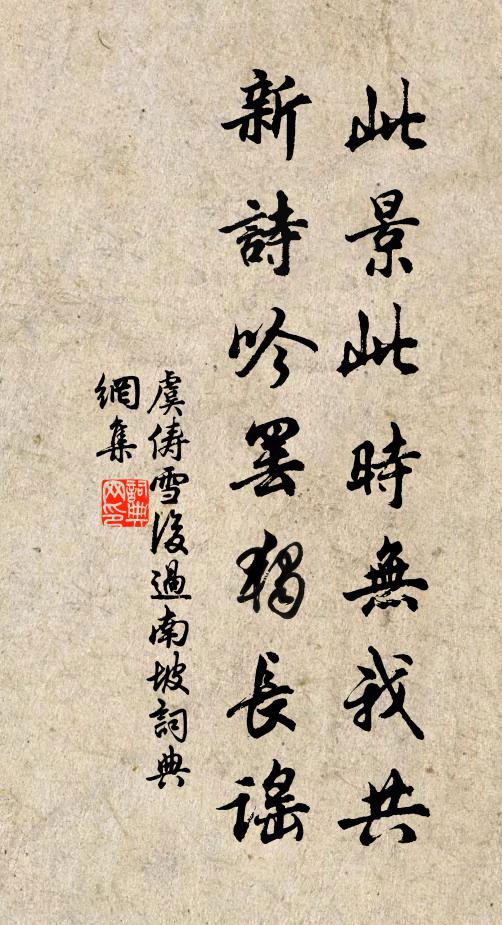 此景此時無我共
新詩吟罷獨長謡
虞儔雪後過南坡詞典
網集
詞典
网印